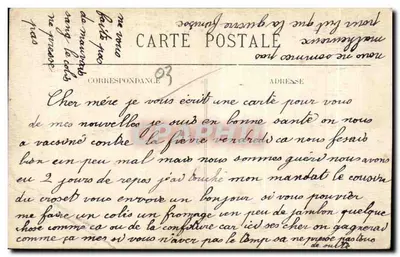 ne vous
faite pas
de mauvais
sang le colis
ne presse
pas
nous ne somme pas
malheureux
pour but que la guerre finisse
CARTE POSTALE
CORRESPONDANCE
ADRESSE
03
Cher mère je vous écrit une carte pour vous
de mes nouvelles je suis en bonne santé on nous
a vacsiné contre la fievre vendredi ca nous fesais
bien un peu mal mais nous sommes guéri nous avons
eu 2 jours de repos j'ai touché mon mandat le cousin
du croset vous envoye un bonjour si vous pouvier
me faire un colis un fromage un peu de jambon quelque
chose comme ca ou de la confiture car ici ses cher on gagnerais
comme ça mes si vous n'aver pas le temp sa ne presse pas
de suite